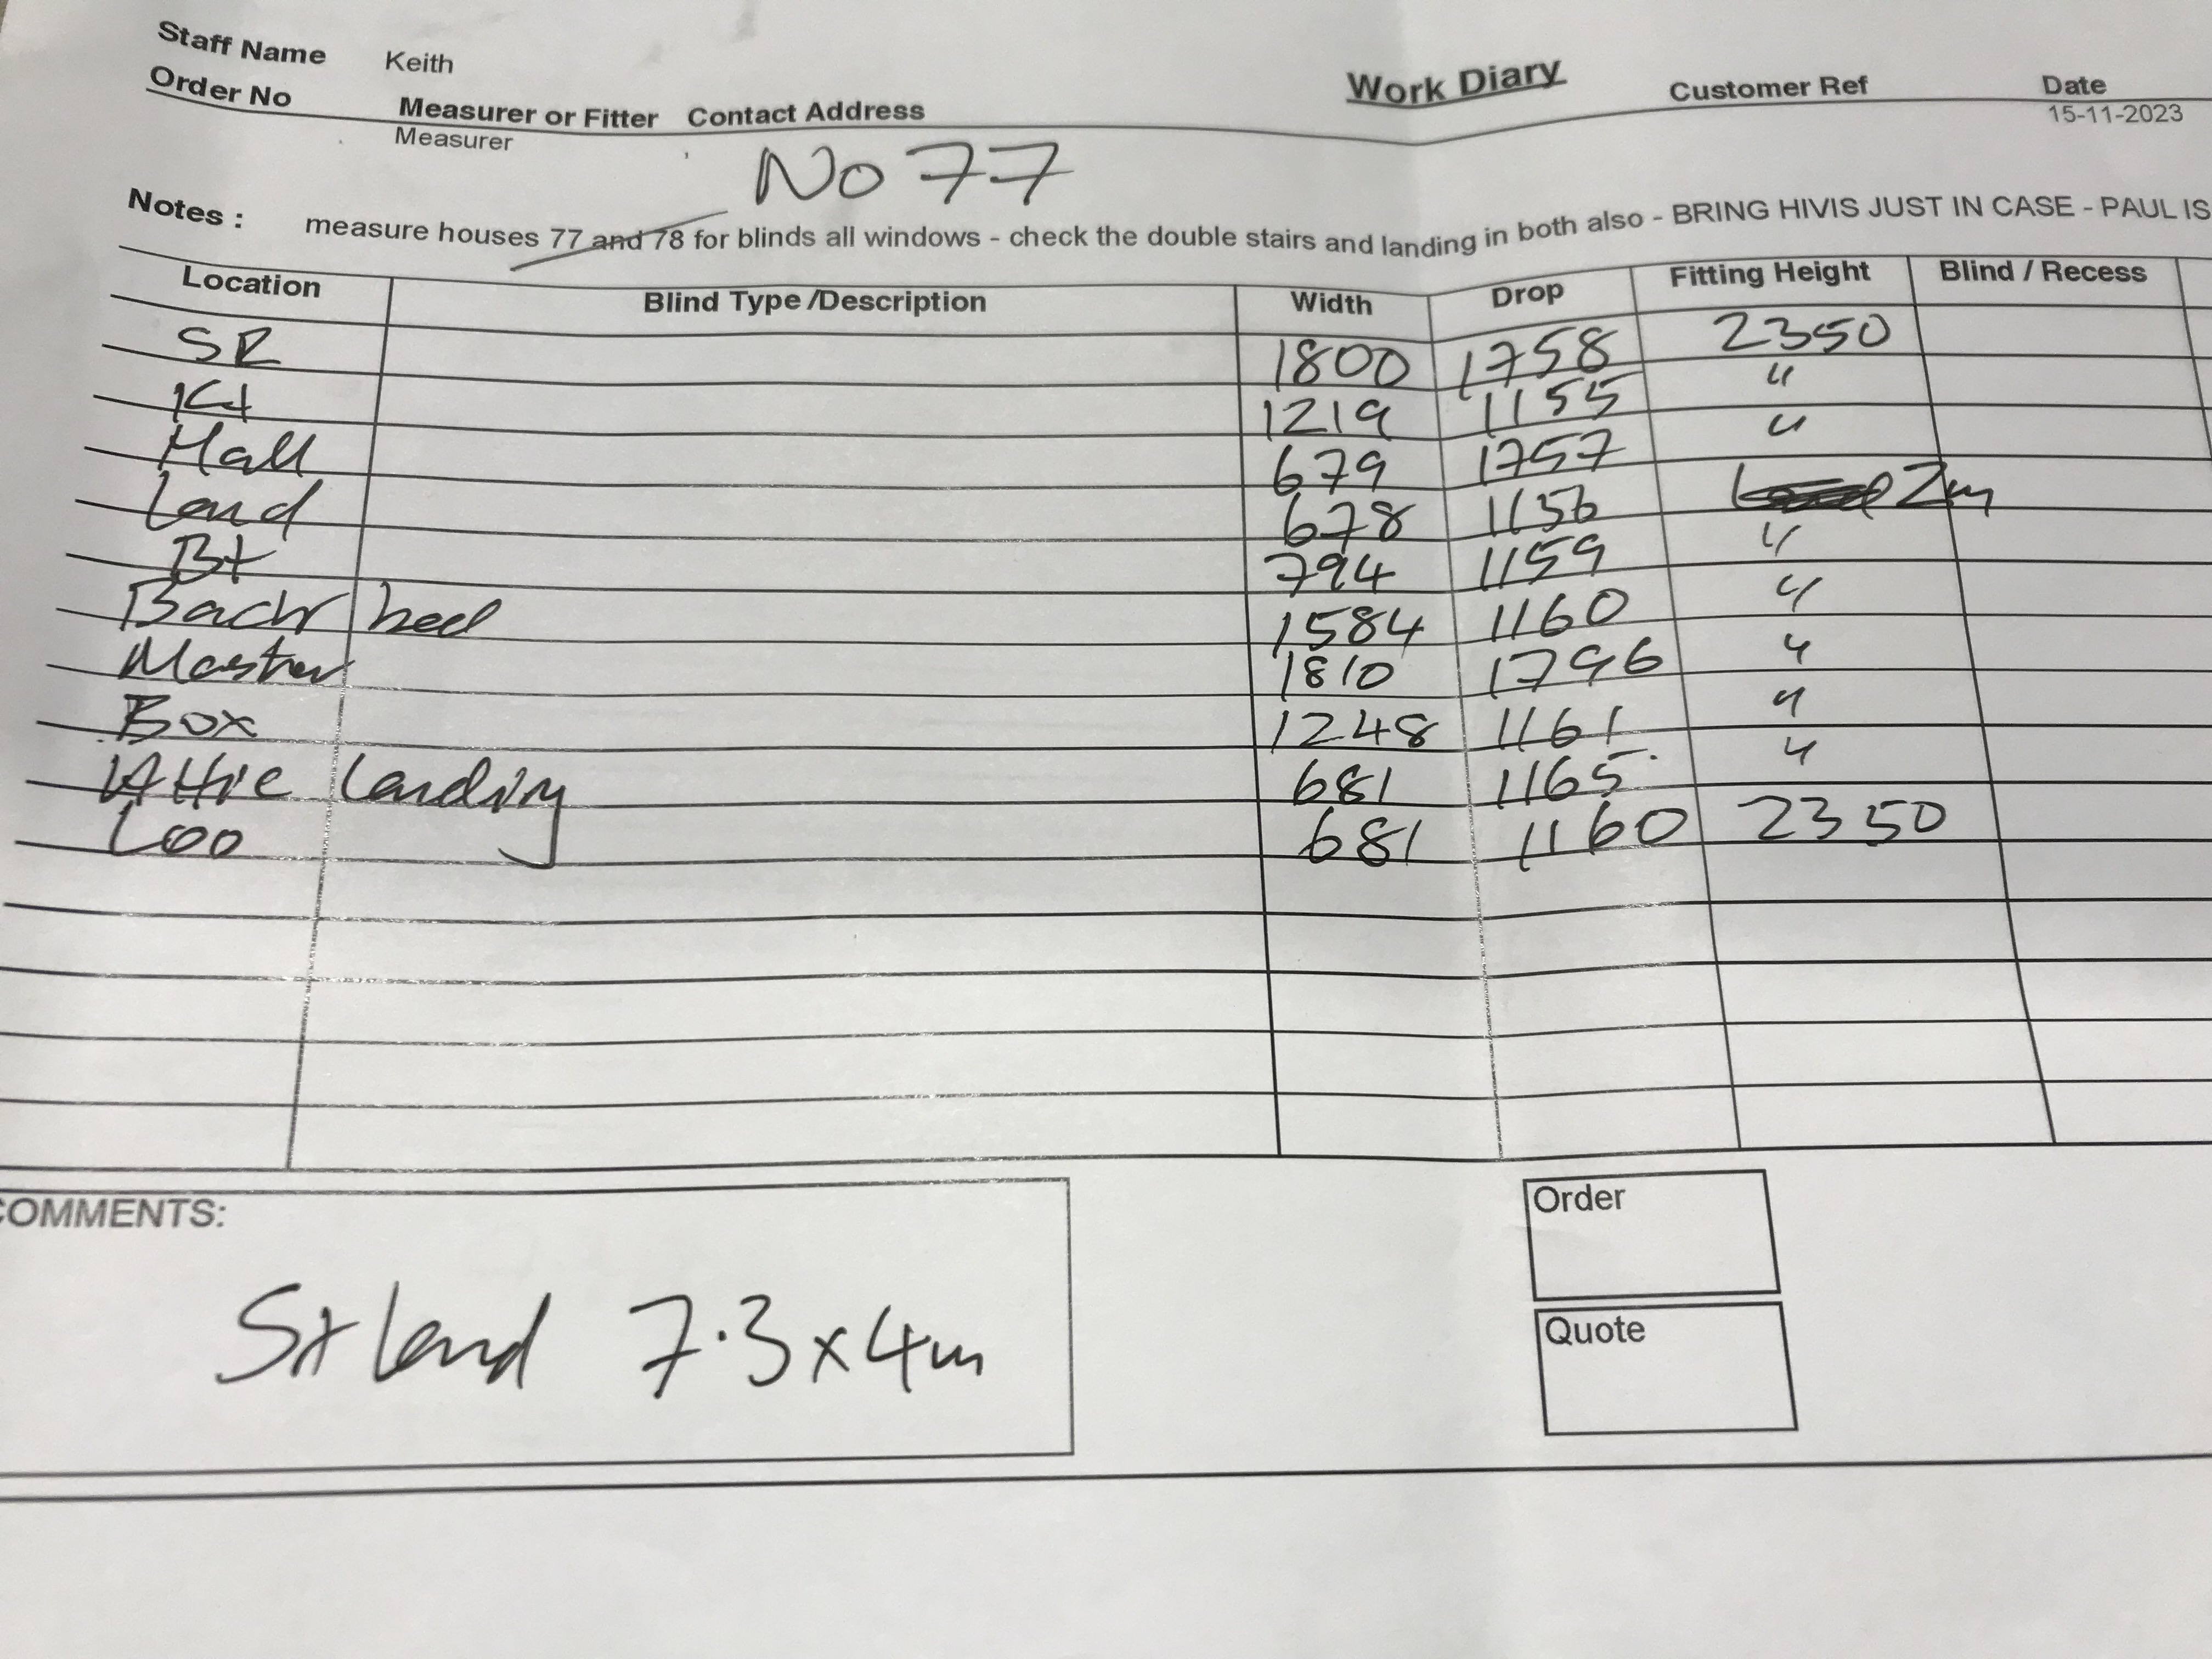 Staff Name Keith
Work Diary Customer Ref Date
Order No Measurer or Fitter Contact Address
Measurer 15-11-2023
No 77
Notes : measure houses 77 and 78 for blinds all windows - check the double stairs and landing in both also - BRING HIVIS JUST IN CASE - PAUL IS
Location Blind Type /Description Width Drop Fitting Height Blind / Recess
SR 1800 1758 2350
Kt 1219 1155 "
Hall 679 1757 "
Land 678 1156 2m
Bt 794 1159 "
Back bed 1584 1160 "
Master 1810 1796 "
Box 1248 1161 "
Attic Landing 681 1165 "
Loo 681 1160 2350
COMMENTS:
St Land 7.3 x 4m
Order
Quote